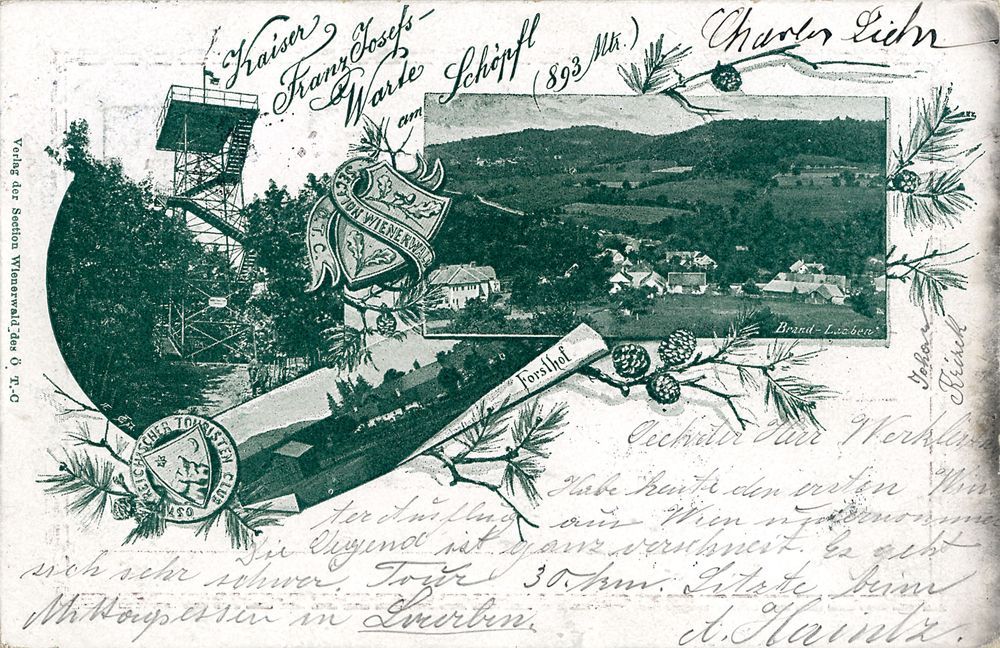 Kaiser
Franz Josefs-
Warte
am Schöpfl
(893 Mtr.)
Charles
Verlag der Section Wienerwald des Ö T.-C
SECTION WIENERWALD
Ö.T.C.
Brand-Laaben
Forsthof
ÖSTERREICHISCHER TOURISTEN CLUB
Johan
Geehrter Herr
Habe heute den ersten Win
ter Ausflug aus Wien unternommen
Die Gegend ist ganz verschneit. Es geht
sich sehr schwer. Tour 30. km. Sitzte beim
Mittagessen in
A. Haintz.